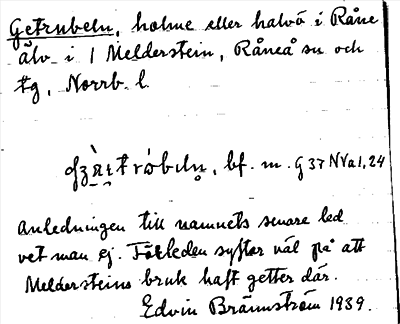 Getrubeln, holme eller halvö i Råne
älv i / Melderstein, Råneå sn och
tg, Norrb. l.
bf. m. G 37 NVa1,24
Anledningen till namnets senare led
vet man ej. Förleden syftar väl på att
Meldersteins bruk haft getter där.
Edvin Brännström 1939.